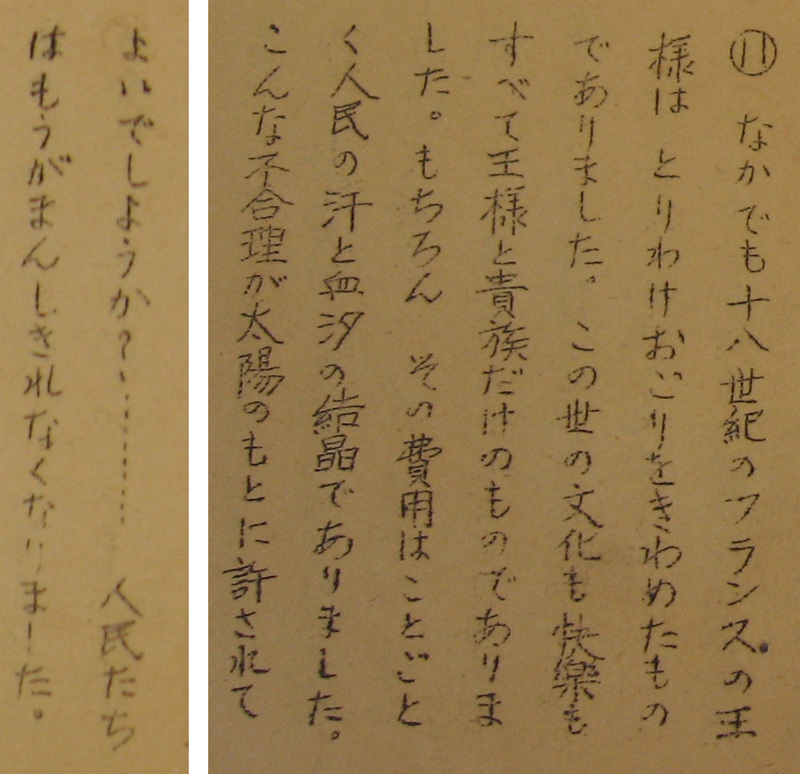 ⑪ なかでも十八世紀のフランスの王
様は とりわけおごりをきわめたもの
でありました。この世の文化も快楽も
すべて王様と貴族だけのものでありま
した。もちろん その費用はことごと
く人民の汗と血汐の結晶でありました。
こんな不合理が太陽のもとに許されて
よいでしようか?………… 人民たち
はもうがまんしきれなくなりました。